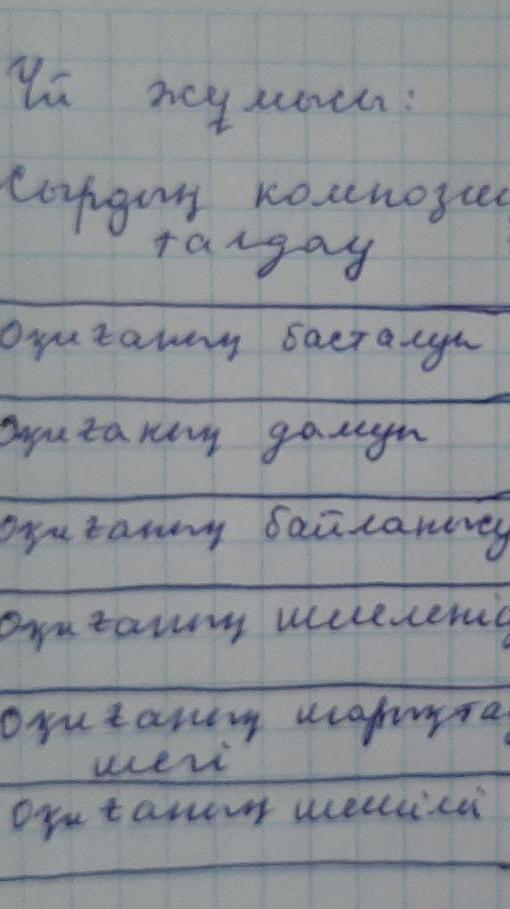 Үй жұмысы:
Жырдың компози
талдау
Оқиғаның басталуы
Оқиғаның дамуы
Оқиғаның байланысу
Оқиғаның шиелені
Оқиғаның шарықта
шегі
Оқиғаның шешімі